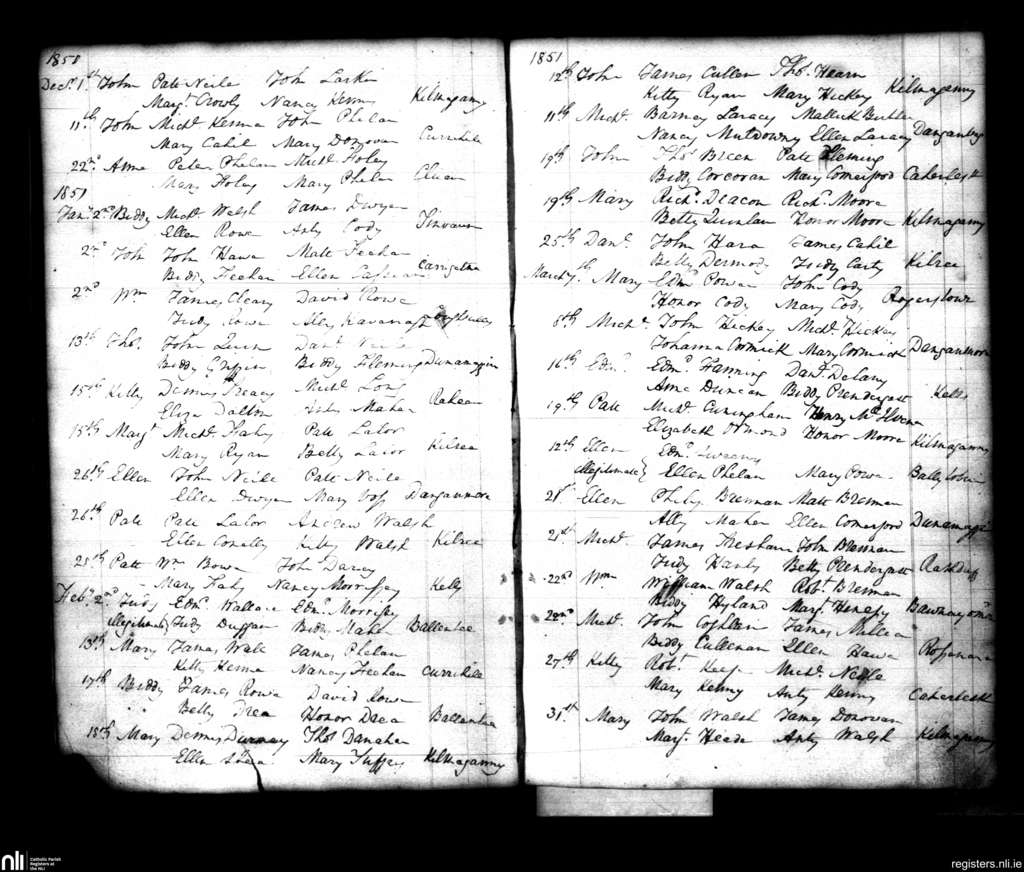 1850
Decr. 1st John Patt Neile John Larkin
Margt. Crowly Nancy Kenna Kilmaganny
11th John Michl. Kenna John Phelan
Mary Cahil Mary Donovan Currihile
22nd Anne Peter Phelan Michl. Foley
Mary Foley Mary Phelan
1851
Jany. 2nd Biddy Michl. Welsh James Dwyer
Ellen Rowe Anty Cody Tinvaun
2nd John John Hawe Matt Feehan
Biddy Feehan Ellen
2nd Wm James Cleary David Rowe
Judy Rowe Alley Kavanagh
13th Thos. John Quin Danl. Neile
Biddy Griffin Biddy Fleming Dunamaggin
15th Kitty Dennis Treacy Michl. Long
Eliza Dalton Maher
15th Margt. Michl. Fahy Patt Lalor
Mary Ryan Betty Lalor Kilree
26th Ellen John Neile Patt Neile
Ellen Dwyer Mary Voss Danganmore
26th Patt Patt Lalor Andrew Walsh
Ellen Conolly Kitty Walsh Kilree
28th Patt Wm Bowe John Darcy
Mary Fahy Nancy Morrissey Kells
Feby. 2nd Judy Edmd. Wallace Edmd. Morrissey
illegitimate Judy Duggan Biddy Maher Ballenlee
13th Mary James Wall James Phelan
Kitty Kenna Nancy Feehan Currihile
17th Biddy James Rowe David Rowe
Betty Drea Honor Drea Ballenlee
18th Mary Dennis Thos Danaher
Ellen Shea Mary Kilmaganny
1851
12th John James Cullen Thos. Hearn
Kitty Ryan Mary Hickey Kilmaganny
11th Michl. Barney Laracy Butler
Nancy Muldowny Ellen Laracy
19th John Thos Breen Patt Fleming
Biddy Corcoran Mary Comerford Caherlesk
19th Mary Richd. Deacon Richd. Moore
Betty Quinlan Honor Moore Kilmaganny
25th Danl. John Hara James Cahil
Betty Dermody Judy Carty Kilree
March 7th Mary Edmd Power John Cody
Honor Cody Mary Cody Rogerstown
8th Michl. John Hickey Michl. Hickey
Johanna Cormick Mary Cormick Danganmore
16th Edmd. Edmd. Fanning Danl. Delany
Anne Duncan Biddy Prendergast Kells
19th Patt Michl. Cuningham Henry
Elizabeth Ormond Honor Moore Kilmaganny
12th Ellen Edmd. Sweeny
illegitimate Ellen Phelan Mary Power
21st Ellen Philip Brennan Matt Brennan
Ally Maher Ellen Comerford Dunamaggin
21st Michl. James John Brennan
Judy Hanly Betty Prendergast
22nd Wm William Walsh Robt. Brennan
Biddy Hyland Margt.
22nd Michl. John Coghlan James Millea
Biddy Cullenan Ellen Hawe Rossenara
27th Kitty Robt. Keefe Michl. Neile
Mary Kenny Anty Kenny Caherlesk
31st Mary John Walsh James Donovan
Margt. Heade Anty Walsh Kilmaganny
nli Catholic Parish
Registers at
the NLI
registers.nli.ie